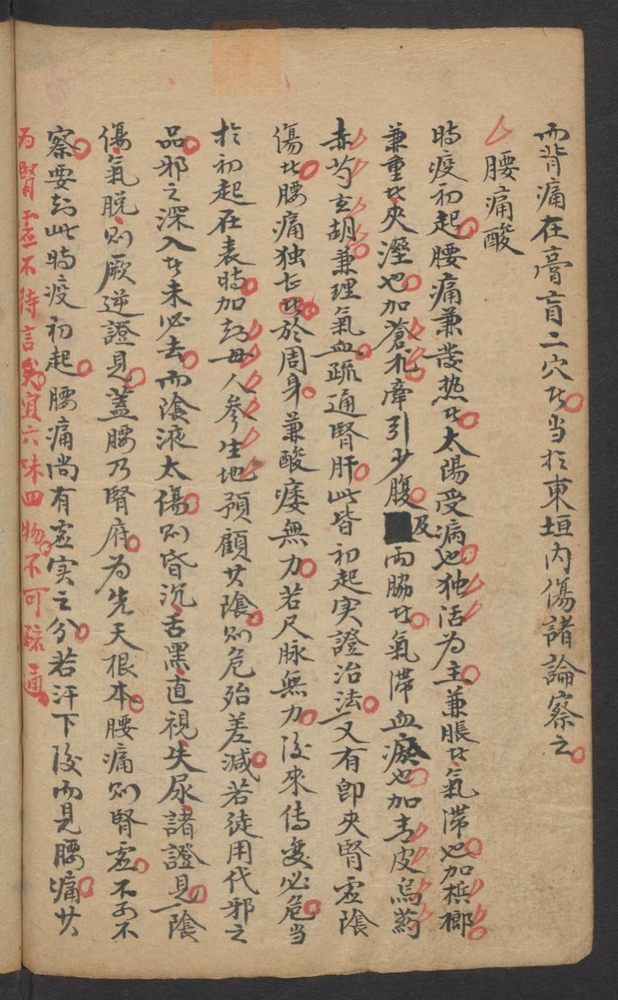 而背痛在膏肓二穴者当於東垣内傷諸論察之
腰痛酸
時疫初起腰痛兼發热者太陽受病也独活为主兼脹者氣滞也加梹榔
兼重者夾溼也加蒼朮牽引少腹及両脇者氣滞血瘀也加青皮烏药
赤芍玄胡兼理氣血疏通腎肝此皆初起实證治法又有即夾腎虛陰
傷者腰痛独甚於周身兼酸痿無力若尺脉無力後來傳变必危当
於初起在表時加知母人參生地預顧其陰則危殆差減若徒用伐邪之
品邪之深入者未必去而陰液太傷則昏沉舌黑直視失尿諸證見陰
傷氣脱則厥逆證見蓋腰乃腎府为先天根本腰痛則腎虛不可不
察要知此時疫初起腰痛尚有虛实之分若汗下後而見腰痛其
为腎虛不待言矣宜六味四物不可疏通